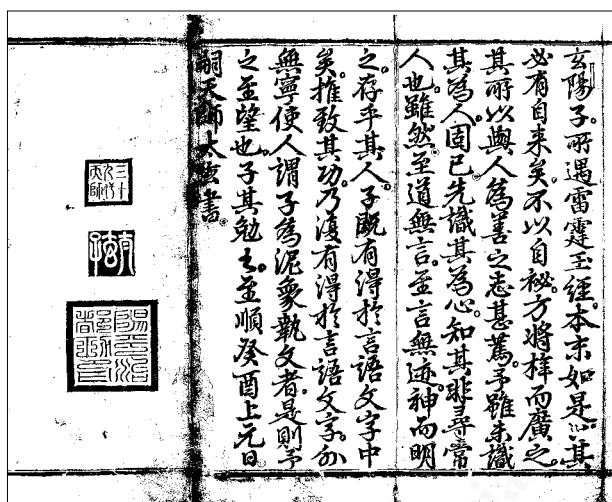 玄陽子。所遇雷霆玉經。本末如是。此其
必有自来矣。不以自秘。方將梓而廣之。
其所以與人為善之志甚篤。予雖未識
其為人。固已先識其為心。知其非尋常
人也。雖然。至道無言。至言無迹。神而明
之。存乎其人。子既有得於言語文字中
矣。推致其功。乃復有得於言語文字外
無寧使人謂子為泥象執文者。是則予
之至望也。子其勉之。至順癸酉上元日
嗣天師太玄書。
三十
九代
天師